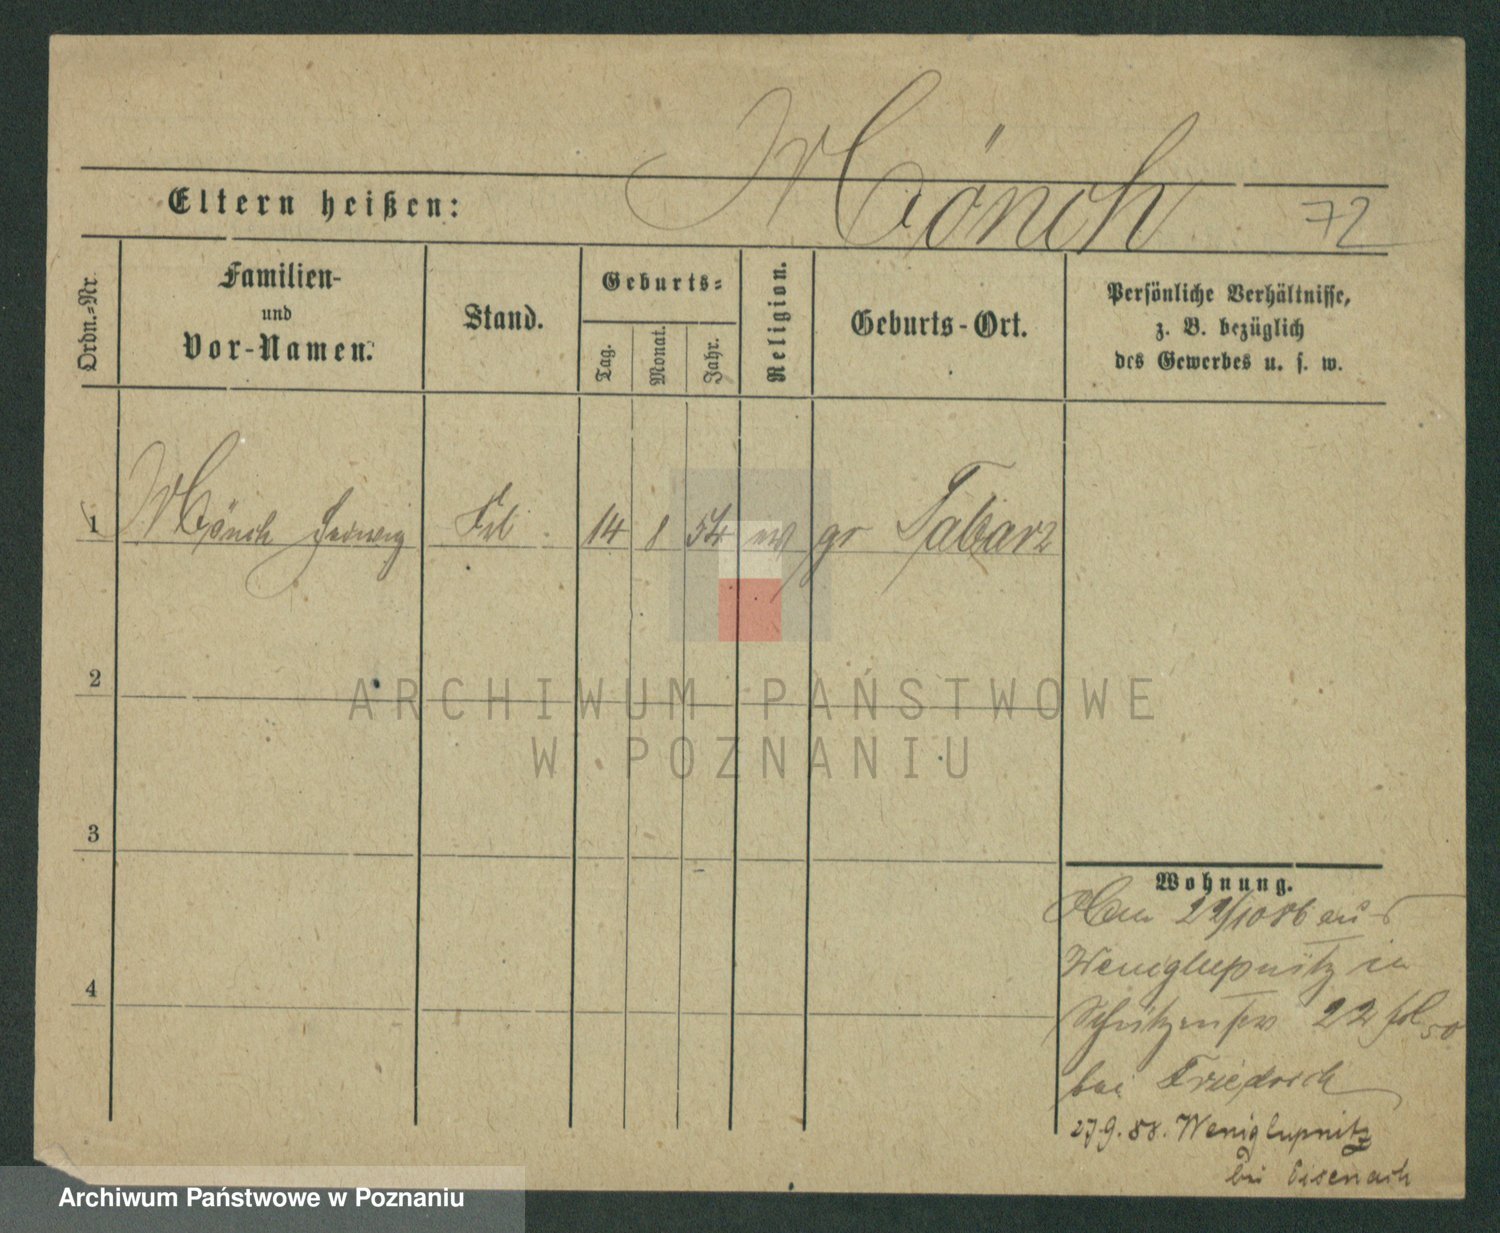 Mönch
Eltern heißen:
72
Ordn.-Nr.
Familien-
und
Vor-Namen.
Stand.
Geburts-
Tag.
Monat.
Jahr.
Religion.
Geburts-Ort.
Persönliche Verhältnisse,
z. B. bezüglich
des Gewerbes u. s. w.
1 Mönch Hedwig Frl. 14 8 54 ev gr Tabarz
2
ARCHIWUM PAŃSTWOWE
W POZNANIU
3
4
Wohnung.
22/10 86 aus
Weniglupnitz in
Schützenstr 22 fol 50
bei Friedrich
27.9.88. Weniglupnitz
bei Eisenach
Archiwum Państwowe w Poznaniu